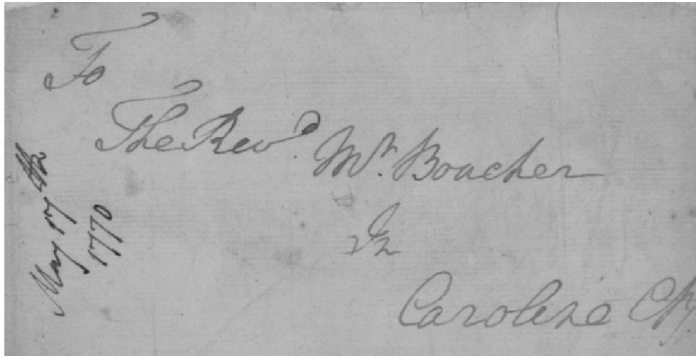 To
The Revd. Mr. Boucher
In
Caroline Cty
May 17th.
1770